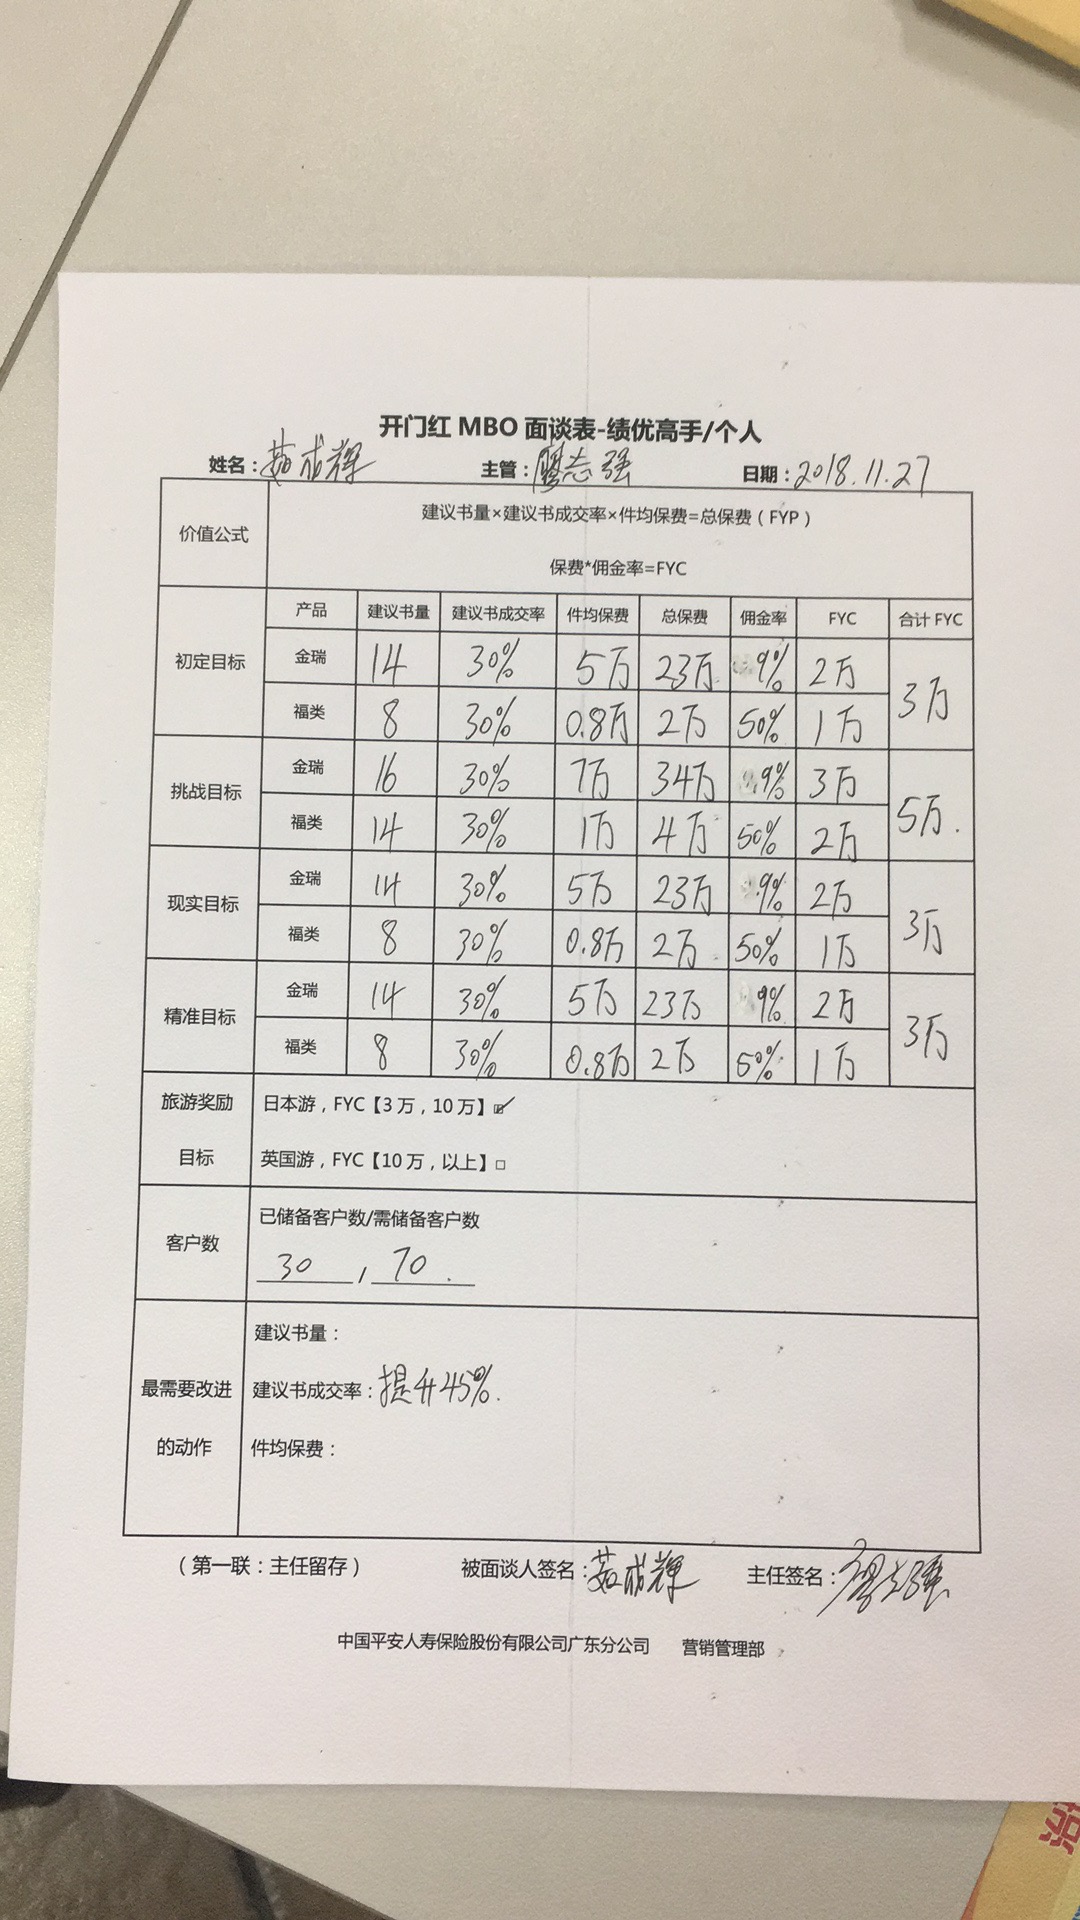 开门红 MBO 面谈表-绩优高手/个人
姓名：茹成辉 主管：廖志强 日期：2018.11.27
价值公式 建议书量×建议书成交率×件均保费=总保费（FYP）
保费*佣金率=FYC
产品 建议书量 建议书成交率 件均保费 总保费 佣金率 FYC 合计 FYC
初定目标 金瑞 14 30% 5万 23万 9% 2万 3万
福类 8 30% 0.8万 2万 50% 1万
挑战目标 金瑞 16 30% 7万 34万 9% 3万 5万.
福类 14 30% 1万 4万 50% 2万
现实目标 金瑞 14 30% 5万 23万 9% 2万 3万
福类 8 30% 0.8万 2万 50% 1万
精准目标 金瑞 14 30% 5万 23万 9% 2万 3万
福类 8 30% 0.8万 2万 50% 1万
旅游奖励 日本游，FYC【3万，10万】☑
目标 英国游，FYC【10万，以上】□
客户数 已储备客户数/需储备客户数
30 , 70 .
建议书量：
最需要改进 建议书成交率：提升45%.
的动作 件均保费：
（第一联：主任留存） 被面谈人签名：茹成辉 主任签名：廖志强
中国平安人寿保险股份有限公司广东分公司 营销管理部